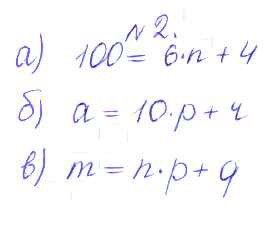 № 2.
а) 100 = 6·n + 4
б) a = 10·p + r
в) m = n·p + q